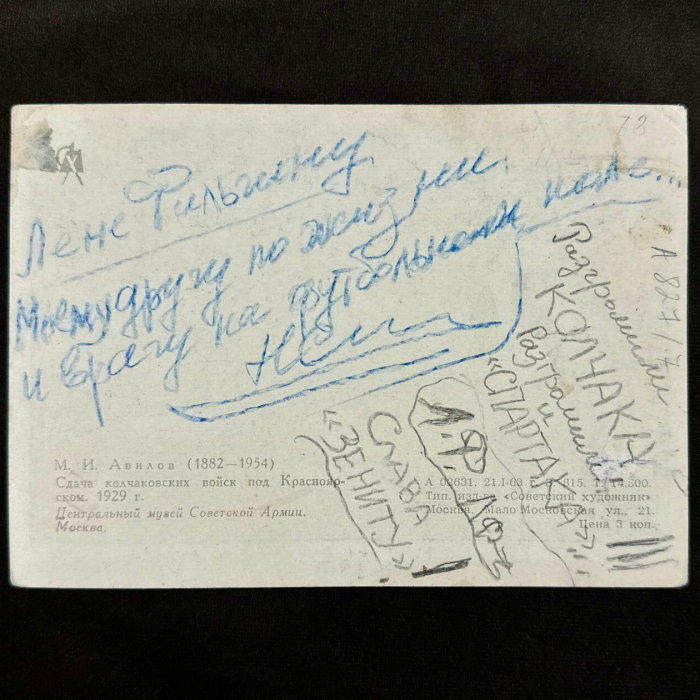 78
Лене Фильгину
Моему другу по жизни
и врагу на футбольном поле...
А 827/7
Разгромили
КОЛЧАКА
Разгромим
и
«СПАРТАК»
Л.Ф.
СЛАВА
«ЗЕНИТУ»!
М. И. Авилов (1882—1954)
Сдача колчаковских войск под Краснояр-
ском. 1929 г.
Центральный музей Советской Армии.
Москва.
А 02631. 21.I-63 г. З. 815. Т. 14.500.
Тип. изд-ва «Советский художник»
Москва, Мало Московская ул., 21.
Цена 3 коп.